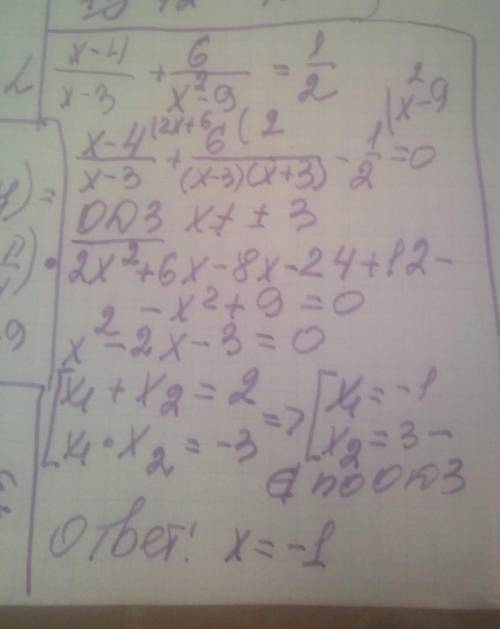 (x-4)/(x-3) + 6/(x²-9) = 1/2
(x-4)/(x-3) (2x+6 + 6/((x-3)(x+3)) (2 - 1/2 (x²-9 = 0
ОДЗ x ≠ ± 3
2x²+6x-8x-24+12-
-x²+9=0
x²-2x-3=0
[x₁+x₂=2 => [x₁=-1
x₁·x₂=-3 x₂=3-
по ОДЗ
Ответ: x=-1